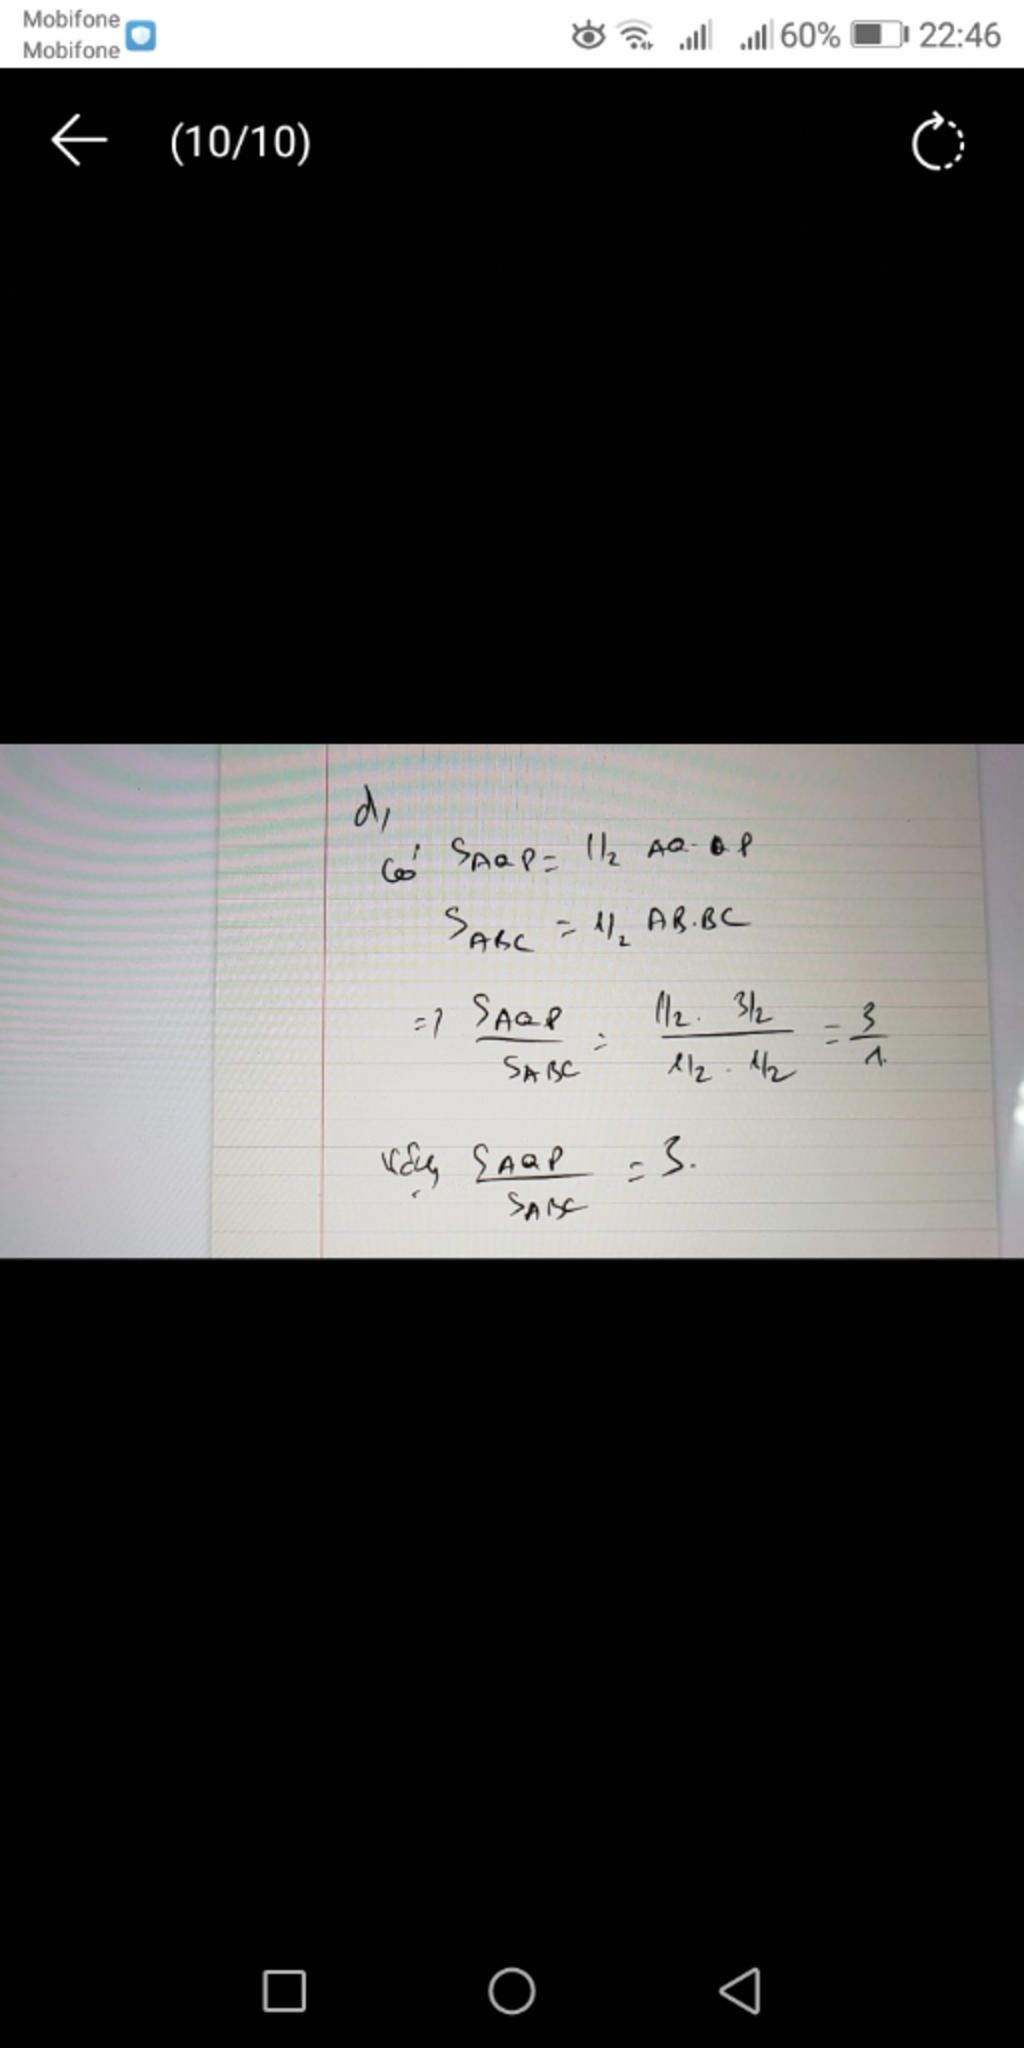 Mobifone
Mobifone
60% 22:46
(10/10)
d,
Có S AQP = 1/2 AQ. QP
S ABC = 1/2 AB.BC
=> S AQP / S ABC = 1/2. 3/2 / 1/2. 1/2 = 3/1
Vậy S AQP / S ABC = 3.